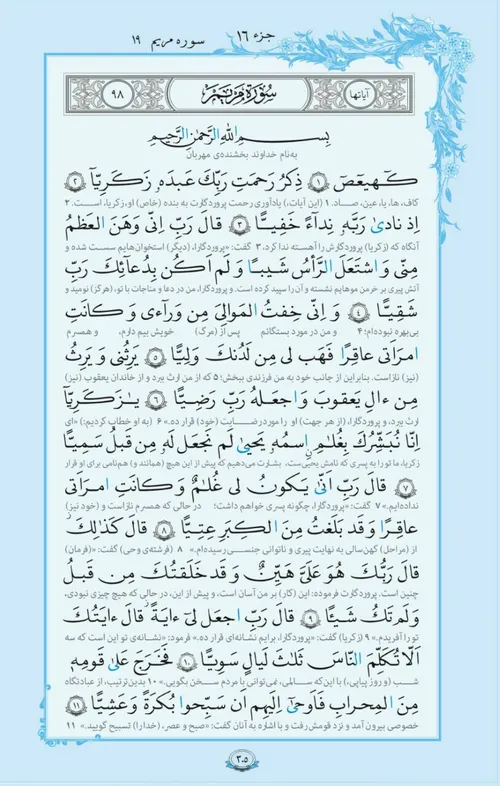 جزء ۱۶
سوره مریم ۱۹
آیاتها
سُورَةُ مَریَم
۹۸
بِسمِ اللهِ الرَّحمٰنِ الرَّحیمِ
به‌نام خداوند بخشنده‌ی مهربان
كٓهٰیٰعٓصٓ ۱ ذِكرُ رَحمَتِ رَبِّكَ عَبدَهٗ زَكَرِیّا ۲
کاف، ها، یا، عین، صاد. ۱ (این آیات،) یادآوری رحمت پروردگارت به بنده (خاص) او، زکریا، است. ۲
اِذ نادىٰ رَبَّهٗ نِداءً خَفِیًّا ۳ قالَ رَبِّ اِنّی وَهَنَ العَظمُ
آنگاه که (زکریا) پروردگارش را آهسته ندا کرد. ۳ گفت: «پروردگارا، (دیگر) استخوان‌هایم سست شده و
مِنّی وَ اشتَعَلَ الرَّأسُ شَیبًا وَ لَم اَكُن بِدُعائِكَ رَبِّ
آتش پیری بر خرمن موهایم نشسته و آن را سپید کرده است. و پروردگارا، من در دعا و مناجات با تو، (هرگز) نومید و
شَقِیًّا ۴ وَ اِنّی خِفتُ المَوالِیَ مِن وَراءی وَ كانَتِ
بی‌بهره نبوده‌ام؛ ۴ و من در مورد بستگانم پس از (مرگ) خویش بیم دارم، و همسرم
امرَاَتی عاقِرًا فَهَب لی مِن لَدُنكَ وَلِیًّا ۵ یَرِثُنی وَ یَرِثُ
(نیز) نازاست. بنابراین از جانب خود به من فرزندی ببخش؛ ۵ که از من ارث ببرد و از خاندان یعقوب (نیز)
مِن ءالِ یَعقوبَ وَ اجعَلهُ رَبِّ رَضِیًّا ۶ یٰزَكَرِیّا
ارث ببرد، و پروردگارا، (از هر جهت) او را مورد رضایت (خود) قرار ده.» ۶ (به او خطاب کردیم:) «ای
اِنّا نُبَشِّرُكَ بِغُلٰمٍ اسمُهٗ یَحیىٰ لَم نَجعَل لَهٗ مِن قَبلُ سَمِیًّا
زکریا، ما تو را به پسری که نامش یحیی‌ست، بشارت می‌دهیم که پیش از این هیچ (همانند و) هم‌نامی برای او قرار
۷ قالَ رَبِّ اَنّىٰ یَكونُ لی غُلٰمٌ وَ كانَتِ امرَاَتی
نداده‌ایم.» ۷ گفت: «پروردگارا، چگونه پسری خواهم داشت؛ در حالی که همسرم نازاست و (خود نیز)
عاقِرًا وَ قَد بَلَغتُ مِنَ الكِبَرِ عِتِیًّا ۸ قالَ كَذٰلِكَ
از (مراحل) کهن‌سالی به نهایت پیری و ناتوانی جنسی رسیده‌ام.» ۸ (فرشته‌ی وحی) گفت: «(فرمان)
قالَ رَبُّكَ هُوَ عَلَیَّ هَیِّنٌ وَ قَد خَلَقتُكَ مِن قَبلُ
چنین است. پروردگارت فرموده: این (کار) بر من آسان است، و پیش از این، در حالی که هیچ چیزی نبودی،
وَ لَم تَكُ شَیئًا ۹ قالَ رَبِّ اجعَل لی ءایَةً قالَ ءایَتُكَ
تو را آفریدم.» ۹ (زکریا) گفت: «پروردگارا، برایم نشانه‌ای قرار ده.» فرمود: «نشانه‌ی تو این است که سه
اَلّا تُكَلِّمَ النّاسَ ثَلٰثَ لَیالٍ سَوِیًّا ۱۰ فَخَرَجَ عَلىٰ قَومِهٖ
شب (و روز پیاپی،) با این‌که سالمی، نمی‌توانی با مردم سخن بگویی.» ۱۰ بدین‌ترتیب، از عبادتگاه
مِنَ المِحرابِ فَاَوحىٰ اِلَیهِم اَن سَبِّحوا بُكرَةً وَ عَشِیًّا ۱۱
خصوصی بیرون آمد و نزد قومش رفت و با اشاره به آنان گفت: «صبح و عصر، (خدا را) تسبیح گویید.» ۱۱
۳۰۵